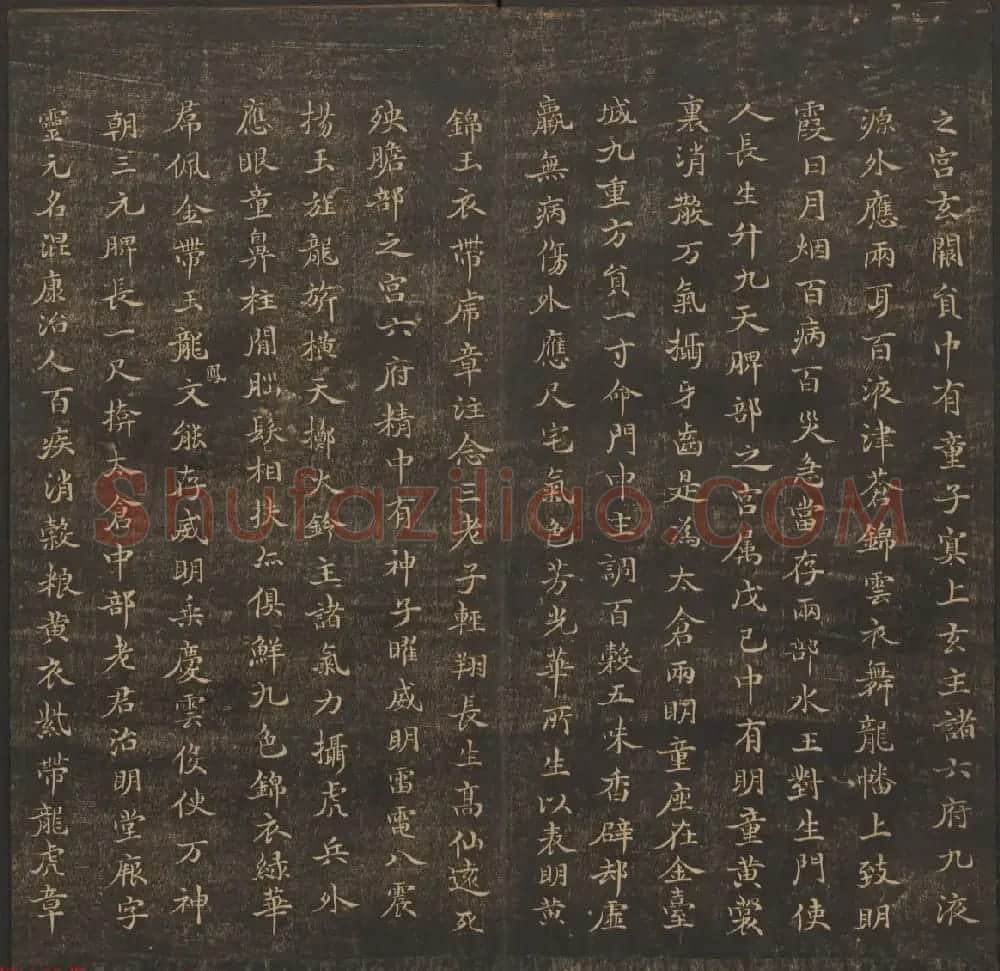 之宫玄闕貟中有童子寞上玄主諸六府九液
源外應兩耳百液津蒼錦雲衣舞龍幡上致明
霞日月烟百病百災急當存兩部水王對生門使
人長生升九天脾部之宫属戊己中有明童黄裳
裏消散万氣攝牙齒是為太倉兩明童座在金臺
城九重方貟一寸命門中主調百穀五味香辟却虚
羸無病傷外應尺宅氣色芳光華所生以表明黄
錦玉衣帶虎章注念三老子輕翔長生高仙遠死
殃膽部之宫六府精中有神子曜威明雷電八震
揚玉旌龍旂横天擲火鈴主諸氣力攝虎兵外
應眼童鼻柱間腦髮相扶亦俱鮮九色錦衣緑華
帬佩金帶玉龍鳳文能存威明乗慶雲役使万神
朝三元脾長一尺揜太倉中部老君治明堂厥字
靈元名混康治人百疾消穀粮黄衣紫帶龍虎章
Shufaziliao.COM